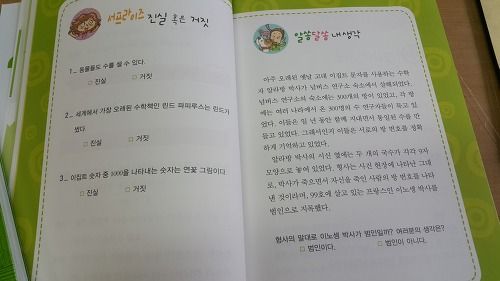 서프라이즈 진실 혹은 거짓
1_ 동물들도 수를 셀 수 있다.
□ 진실 □ 거짓
2_ 세계에서 가장 오래된 수학책인 린드 파피루스는 린드가
썼다.
□ 진실 □ 거짓
3_ 이집트 숫자 중 1000을 나타내는 숫자는 연꽃 그림이다.
□ 진실 □ 거짓
알쏭달쏭 내 생각
아주 오래된 옛날 고대 이집트 문자를 사용하는 수학
자 알라방 박사가 넘버스 연구소 숙소에서 살해되었다.
넘버스 연구소의 숙소에는 300개의 방이 있었고, 각 방
에는 여러 나라에서 온 300명의 수 연구자들이 묵고 있
었다. 이들은 일 년 동안 함께 지내면서 동일한 수를 만
들고 있었다. 그래서인지 이들은 서로의 방 번호를 정확
하게 기억하고 있었다.
알라방 박사의 시신 옆에는 두 개의 국수가 각각 9자
모양으로 놓여 있었다. 형사는 사건 현장에 나타난 그대
로, 박사가 죽으면서 자신을 죽인 사람의 방 번호를 나타
낸 것이라며, 99호에 살고 있는 프랑스인 이노셈 박사를
범인으로 지목했다.
형사의 말대로 이노셈 박사가 범인일까? 여러분의 생각은?
□ 범인이다. □ 범인이 아니다.